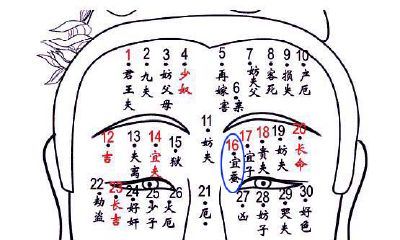 1 君王夫
2 九夫
3 妨父母
4 少奴
5 再嫁
6 害亲
7 妨夫父
8 客死
9 损夫
10 产厄
11 妨夫
12 吉
13 夫离
14 宜夫
15 狱
16 宜蚕
17 宜子
18 贵夫
19 妨夫
20 长命
22 劫盗
23 长吉
24 好奸
25 少子
26 火厄
21 厄
27 凶
28 妨子
29 哭夫
30 好色